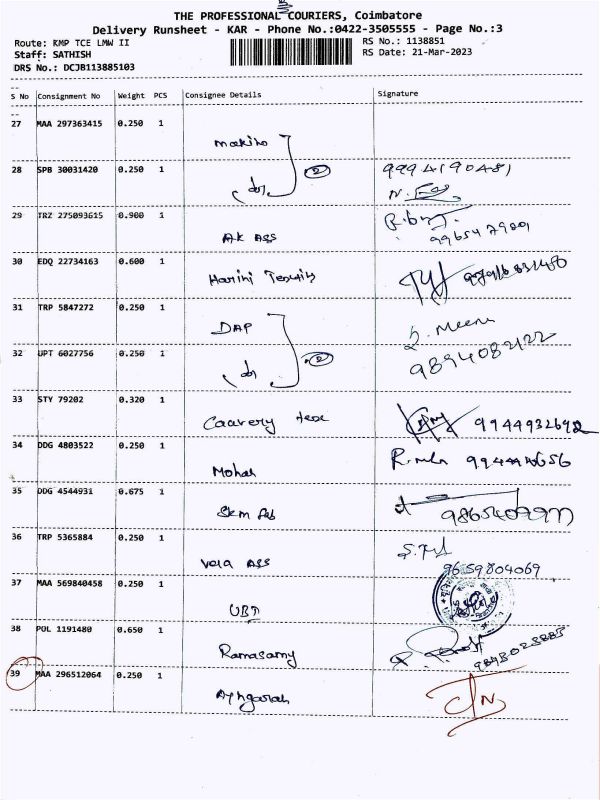 THE PROFESSIONAL COURIERS, Coimbatore
Delivery Runsheet - KAR - Phone No.:0422-3505555 - Page No.:3
Route: KMP TCE LMW II
RS No.: 1138851
Staff: SATHISH
RS Date: 21-Mar-2023
DRS No.: DCJB113885103
S No Consignment No Weight PCS Consignee Details Signature
27 MAA 297363415 0.250 1
makino
28 SPB 30031420 0.250 1 2 9994190481
do
29 TRZ 275093615 0.900 1
AK ASS 9965479001
30 EDQ 22734163 0.600 1
Harini
31 TRP 5847272 0.250 1
DAP S. Meena
32 UPT 6027756 0.250 1 2 9894082122
do
33 STY 79202 0.320 1
Caavery texe 9944932692
34 DDG 4803522 0.250 1
Mohan
35 DDG 4544931 0.675 1
Skm fab
36 TRP 5365884 0.250 1
vela ASS 9659804069
37 MAA 569840458 0.250 1
UBI
38 POL 1191480 0.650 1
Ramasamy
39 MAA 296512064 0.250 1
Ayngaran